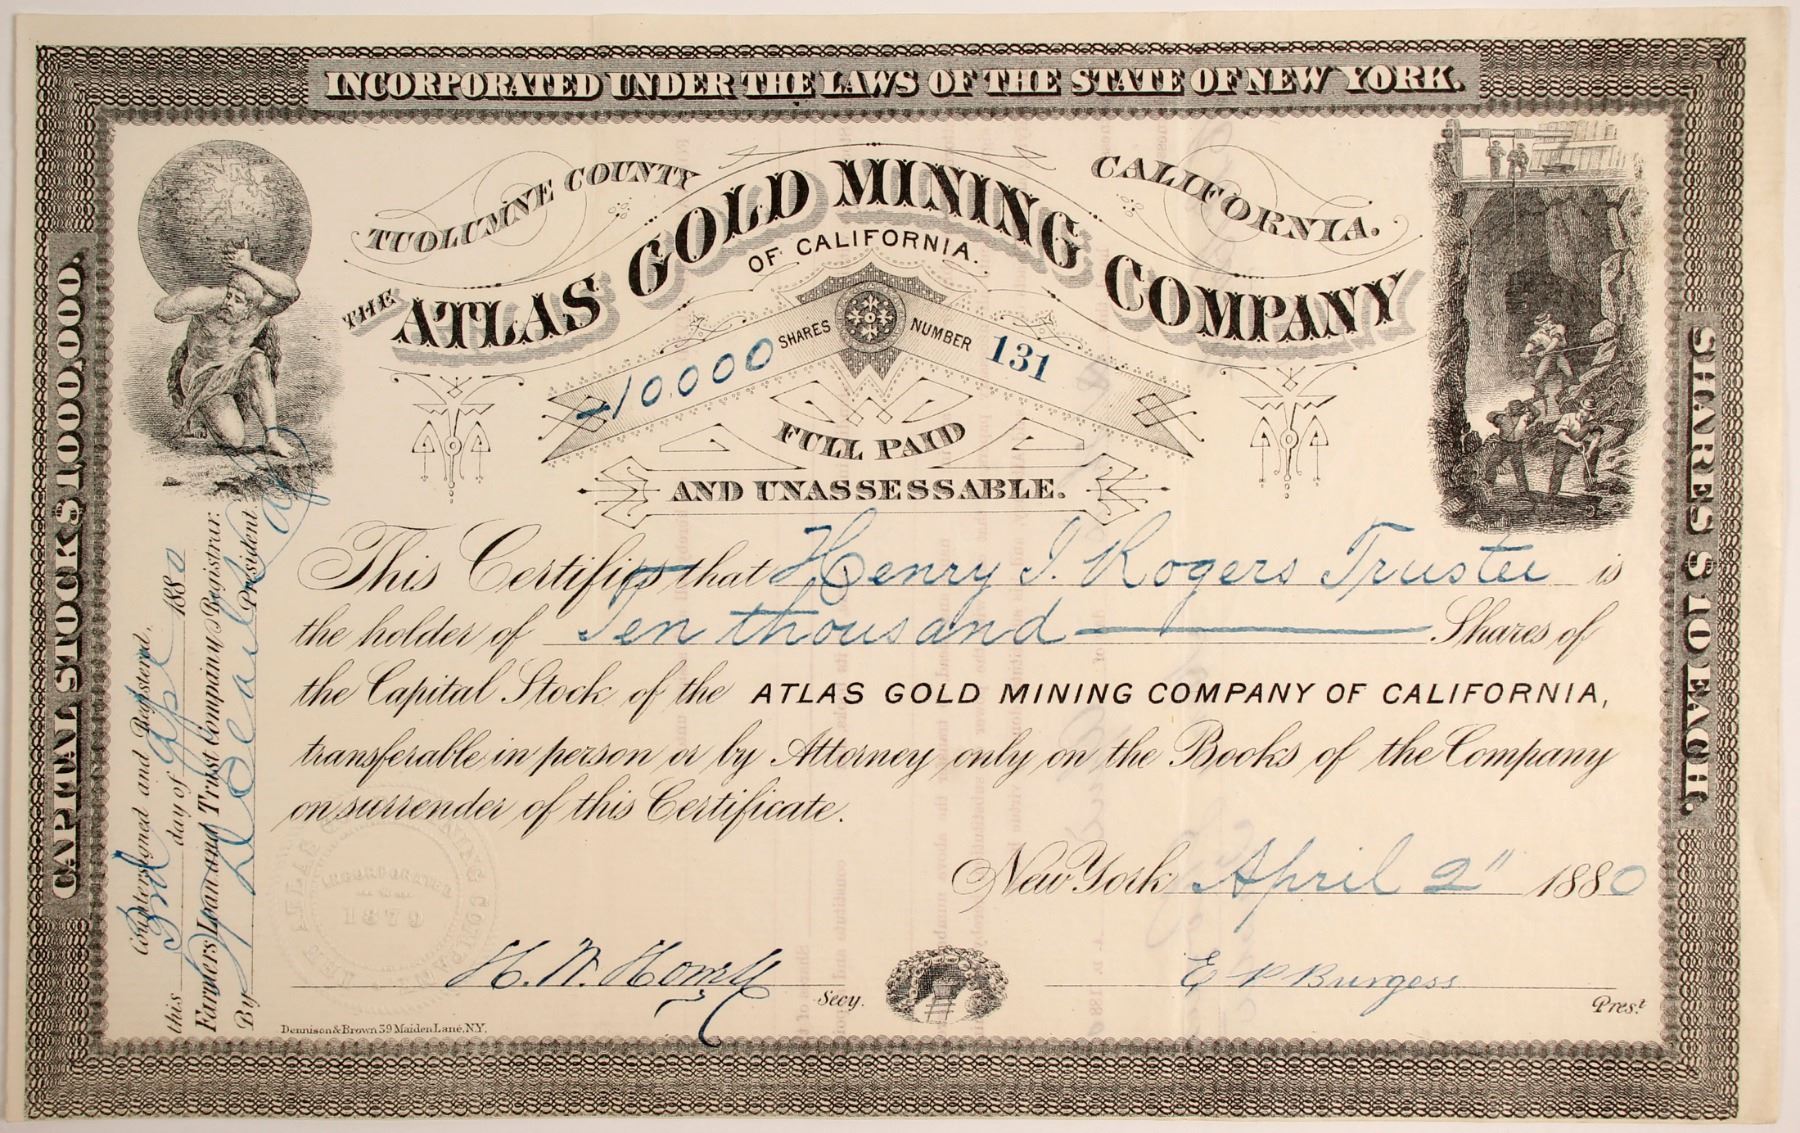 INCORPORATED UNDER THE LAWS OF THE STATE OF NEW YORK.
TUOLUMNE COUNTY CALIFORNIA.
THE ATLAS GOLD MINING COMPANY
OF CALIFORNIA.
10,000 SHARES NUMBER 131
FULL PAID
AND UNASSESSABLE.
CAPITAL STOCK $1,000,000.
SHARES $10 EACH.
This Certifies that Henry I. Rogers Trustee is
the holder of Ten thousand Shares of
the Capital Stock of the ATLAS GOLD MINING COMPANY OF CALIFORNIA,
transferable in person or by Attorney only on the Books of the Company
on surrender of this Certificate.
New York April 2" 1880
H. W. Secy.
E P Burgess Prest
Dennison & Brown 39 Maiden Lane, N.Y.
Countersigned and Registered,
this 2nd day of Apl 1880
Farmers Loan and Trust Company Registrar.
By President
INCORPORATED
1879